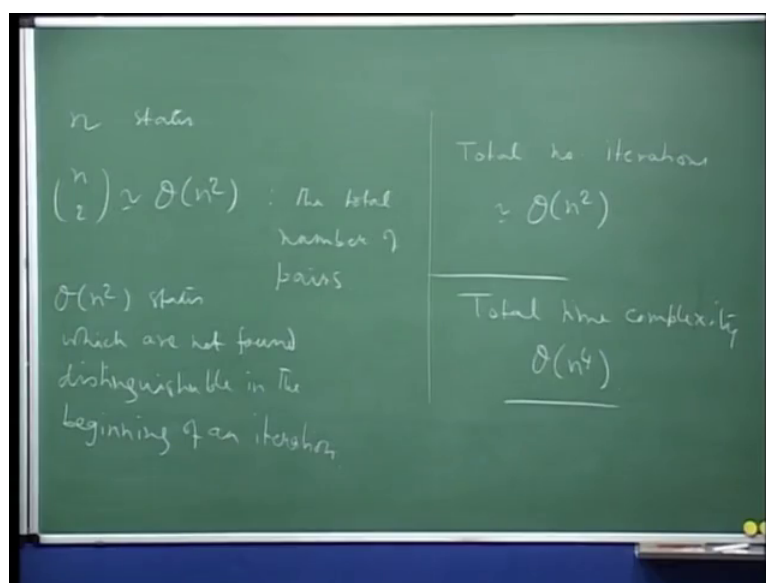 n states
(n 2) ≃ O(n²) : The total
number of
pairs
O(n²) states
which are not found
distinguishable in the
beginning of an iteration.
Total no. iterations
≃ O(n²)
Total time complexity
O(n⁴)